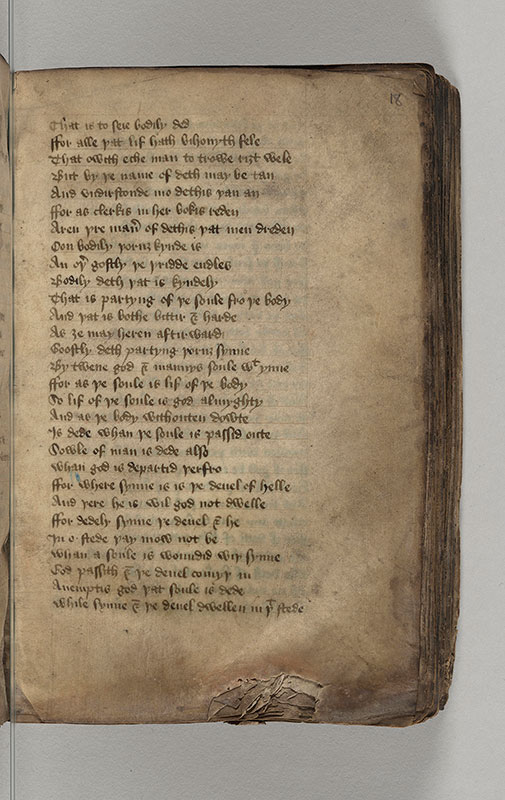 18
That is to seie bodily ded
ffor alle þat lif hath bihouyth fele
That owith eche man to trowe riȝt wele
But by þe name of deth may be tan
And vndirstonde mo dethis þan an
ffor as clerkis in her bokis reden
Aren þre man̄ of dethis þat men dreden
Oon bodily þoruȝ kynde is
An oþ̉ gostly þe þridde endles
Bodily deth þat is kyndely
That is partyng of þe soule fro þe body
And þat is bothe bittir ⁊ harde
As ȝe may heren aftirward
Goostly deth partyng þoruȝ synne
By twene god ⁊ mannys soule wᵗ ynne
ffor as þe soule is lif of þe body
So lif of þe soule is god almyghty
And as þe body withouten dowte
Is dede whan þe soule is passid oute
Sowle of man is dede also
Whan god is departid þerfro
ffor where synne is is þe deuel of helle
And þere he is wil god not dwelle
ffor dedely synne þe deuel ⁊ he
In o stede þay mow not be
Whan a soule is woundid wiþ synne
God passith ⁊ þe deuel comyþ in
Anemptis god þat soule is dede
While synne ⁊ þe deuel dwellen in þᵗ stede